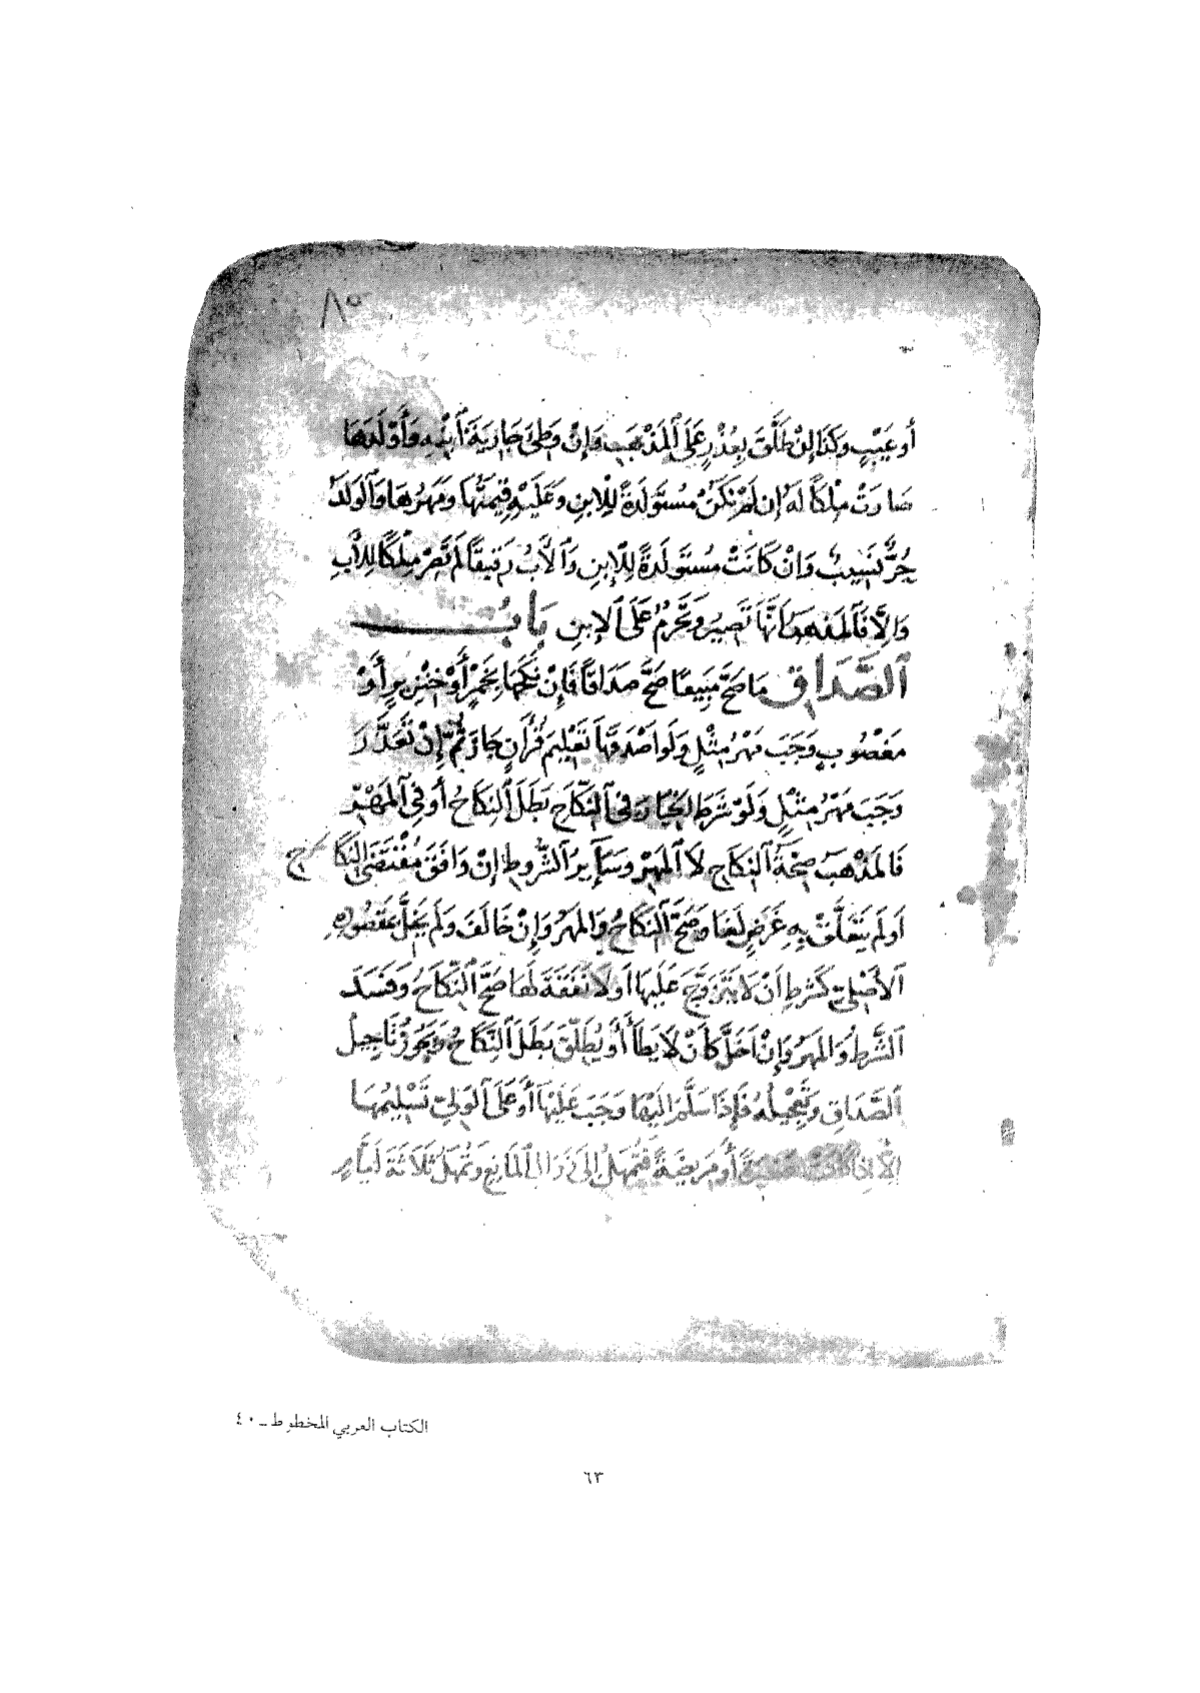 ٨٥
أو عَيْبٍ وكَذَا إِنْ طَلَّقَ بِعُذْرٍ عَلَى ٱلمَذْهَبِ وَإِنْ وَطِئَ جَارِيَةَ ٱبْنِهِ وَأَوْلَدَهَا
صَارَتْ مِلْكًا لَهُ إِن لَمْ تَكُنْ مُسْتَوْلَدَةً لِلِابنِ وعَلَيْهِ قِيمَتُهَا ومَهْرُهَا وَٱلوَلَدُ
حُرٌّ نَسِيبٌ وَإِنْ كَانَتْ مُسْتَوْلَدَةً لِلِابنِ وَٱلأَبُ رَقِيقًا لَمْ تَصِرْ مِلْكًا لِلأَبِ
وَإِلَّا فَٱلمَذْهَبُ أَنَّهَا تَصِيرُ وَتَحْرُمُ عَلَى ٱلِابنِ بَابُ
ٱلصَّدَاقِ مَا صَحَّ مَبِيعًا صَحَّ صَدَاقًا فَإِنْ نَكَحَهَا بِخَمْرٍ أَوْ خِنْزِيرٍ أَوْ
مَغْصُوبٍ وَجَبَ مَهْرُ مِثْلٍ وَلَو أَصْدَقَهَا تَعْلِيمَ قُرْآنٍ جَازَ ثُمَّ إِنْ تَعَذَّرَ
وَجَبَ مَهْرُ مِثْلٍ وَلَوْ شَرَطَ الخِيَارَ فِي ٱلنِّكَاحِ بَطَلَ ٱلنِّكَاحُ أَو فِي ٱلمَهْرِ
فَالمَذْهَبُ صِحَّةُ ٱلنِّكَاحِ لَا ٱلمَهْرِ وسَائِرُ ٱلشُّرُوطِ إِنْ وَافَقَ مُقْتَضَى النِّكَاحِ
أَو لَم يَتَعَلَّقْ بِهِ غَرَضٌ لَغَا وَصَحَّ ٱلنِّكَاحُ وَالمَهْرُ وَإِنْ خَالَفَ وَلَم يُخِلَّ بِمَقْصُودِهِ
ٱلأَصْلِيِّ كَشَرْطِ أَنْ لَا يَتَزَوَّجَ عَلَيْهَا أَو لَا نَفَقَةَ لَهَا صَحَّ ٱلنِّكَاحُ وَفَسَدَ
ٱلشَّرْطُ وَالمَهْرُ وَإِنْ أَخَلَّ كَأَنْ لَا يَطَأَ أَوْ يُطَلِّقَ بَطَلَ ٱلنِّكَاحُ وَيَجُوزُ تَأْجِيلُ
ٱلصَّدَاقِ وَتَعْجِيلُهُ فَإِذَا سَلَّمَ إِلَيْهَا وَجَبَ عَلَيْهَا أَوْ عَلَى ٱلوَلِيِّ تَسْلِيمُهَا
إِلَّا إِذَا كَانَتْ صَغِيرَةً أَو مَرِيضَةً فَتُمْهَلُ إِلَى زَوَالِ ٱلمَانِعِ وَتُمْهَلُ ثَلَاثَةَ أَيَّامٍ
الكتاب العربي المخطوط ــ ٤٠
٦٣